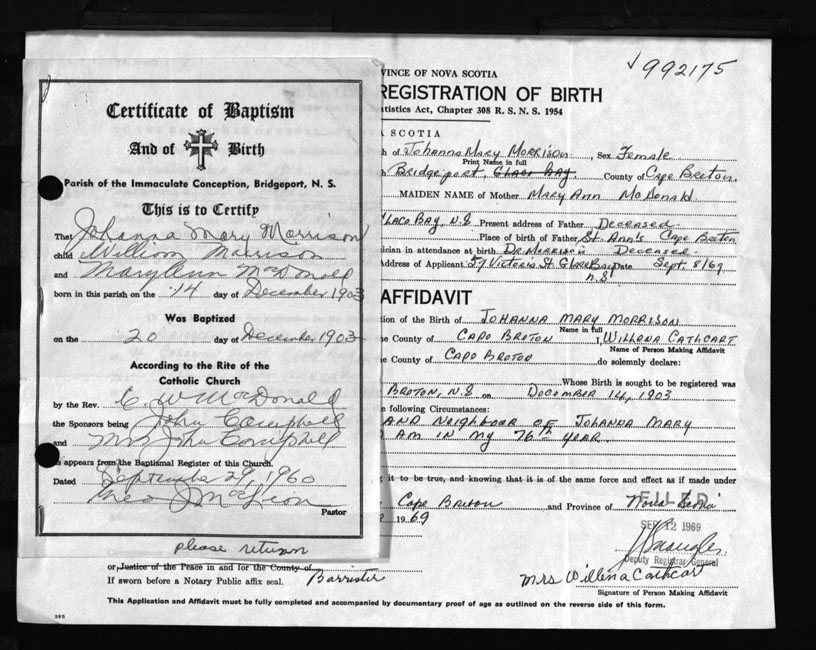 Certificate of Baptism
And of Birth
Parish of the Immaculate Conception, Bridgeport, N. S.
This is to Certify
That Johanna Mary Morrison
child William Morrison
and Mary Ann McDonald
born in this parish on the 14 day of December 1903
Was Baptized
on the 20 day of December 1903
According to the Rite of the
Catholic Church
by the Rev. C. W McDonald
the Sponsors being John Campbell
and Mrs John Campbell
as appears from the Baptismal Register of this Church.
Dated September 29, 1960
Pastor
please return
√992175
VINCE OF NOVA SCOTIA
REGISTRATION OF BIRTH
atistics Act, Chapter 308 R. S. N. S. 1954
A SCOTIA
h of Johanna Mary Morrison Sex Female
Print Name in full
Bridgeport, Glace Bay County of Cape Breton
MAIDEN NAME of Mother Mary Ann McDonald
Glace Bay, N.S Present address of Father Deceased
Place of birth of Father St. Ann's Cape Breton
sician in attendance at birth Dr. Morrison Deceased
Address of Applicant 57 Victoria St. Glace Bay Date Sept. 8/69
N.S
AFFIDAVIT
tion of the Birth of JOHANNA MARY MORRISON
Name in full
he County of CAPO BROTON I, WILLENA CATHCART
Name of Person Making Affidavit
he County of CAPO BROTON do solemnly declare:
Whose Birth is sought to be registered was
BROTON, N.S on DOCOMBER 14, 1903
he following Circumstances:
AND NEIGHBOUR OF JOHANNA MARY
I AM IN MY 76th YEAR.
g it to be true, and knowing that it is of the same force and effect as if made under
Cape Breton and Province of Nova Scotia
FILED
1969
SEP 12 1969
Deputy Registrar General
or Justice of the Peace in and for the County of
If sworn before a Notary Public affix seal. Barrister
Mrs Willena Cathcart
Signature of Person Making Affidavit
This Application and Affidavit must be fully completed and accompanied by documentary proof of age as outlined on the reverse side of this form.